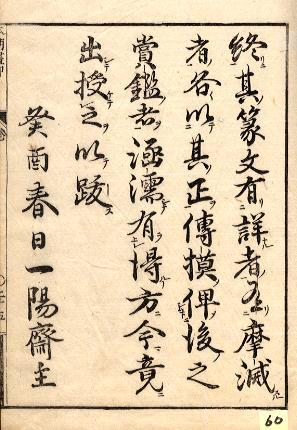 終其篆文有詳者有摩滅
者各以其正傳摸俾後之
賞鑑者涵濡有得方今竟
出授之以跋
癸酉春日一陽齋主
60